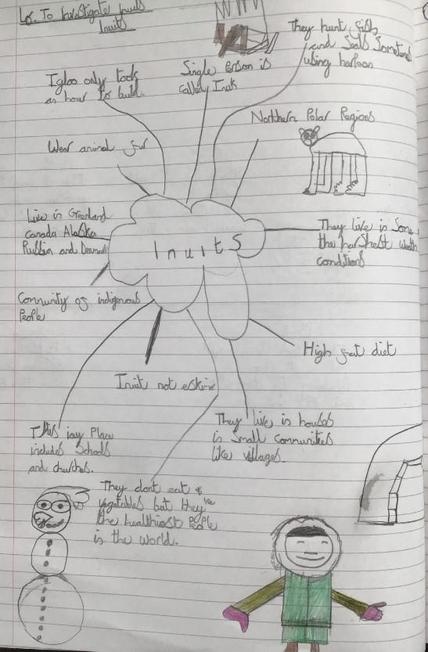 Lo: To investigate Inuits
Inuits
They hunt fish
and Seals Sometimes
using harloon
Igloo only took
an hour to build.
Single person is
called Inuk
Northern Polar Regions
Wear animal fur
Live in Greenland
Canada Alaska
and
They live in Some
the harshest
conditions
Inuits
Community of indigenous
People
High fat diet
Inuit not eskimo
This may Place
includes Schools
and churches.
They live in houses
in Small communities
like villages.
They dont eat
vegetables but they're
the healthiest People
in the world.